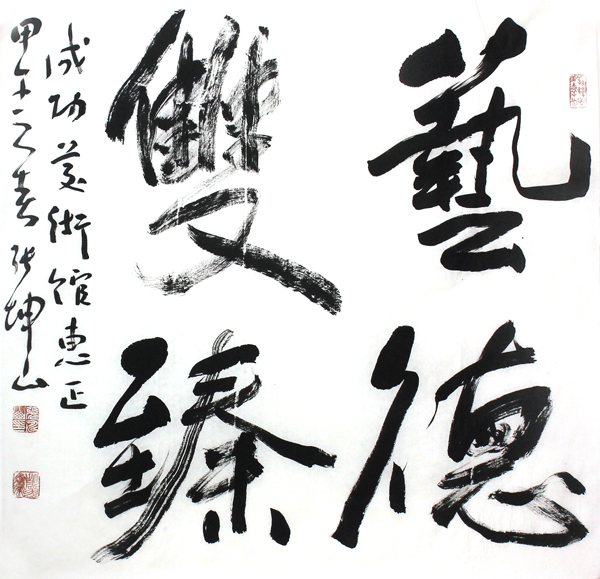 藝德
雙臻
成功美術館惠正
甲午之春張坤山